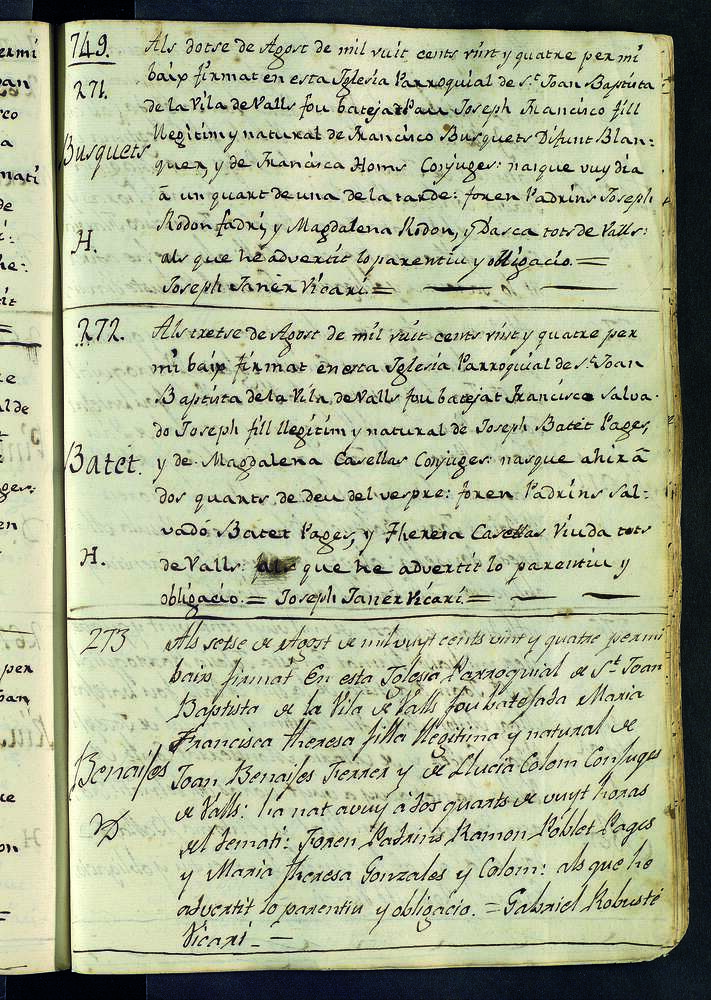 749.
271.
Busquets
H.
Als dotse de Agost de mil vuit cents vint y quatre per mi
baix firmat en esta Iglesia Parroquial de St. Joan Baptista
de la Vila de Valls fou batejat Pau Joseph Francisco fill
llegitim y natural de Francisco Busquets Difunt Blan-
quer, y de Francisca Homs Conjuges: nasque vuy dia
à un quart de una de la tarde: foren Padrins Joseph
Rodon fadri, y Magdalena Rodon, y Dasca tots de Valls:
als que he advertit lo parentiu y obligacio. =
Joseph Janer Vicari =
272.
Batet
H.
Als tretse de Agost de mil vuit cents vint y quatre per
mi baix firmat en esta Iglesia Parroquial de St. Joan
Baptista de la Vila de Valls fou batejat Francisco Salva-
do Joseph fill llegitim y natural de Joseph Batet Pages,
y de Magdalena Casellas Conjuges: nasque ahir à
dos quarts de deu del vespre: foren Padrins Sal-
vadó Batet Pages, y Theresa Casellas Viuda tots
de Valls: als que he advertit lo parentiu y
obligacio. = Joseph Janer Vicari =
273
Benaijes
D
Als setse de Agost de mil vuyt cents vint y quatre per mi
baix firmat En esta Iglesia Parroquial de St. Joan
Baptista de la Vila de Valls fou batejada Maria
Francisca Theresa filla llegitima y natural de
Joan Benaijes Ferrer y de Llucia Colom Conjuges
de Valls: ha nat avuy à dos quarts de vuyt horas
del dematí: Foren Padrins Ramon Poblet Pages
y Maria Theresa Gonzales y Colom: als que he
advertit lo parentiu y obligacio. = Gabriel Robusté
Vicari. =